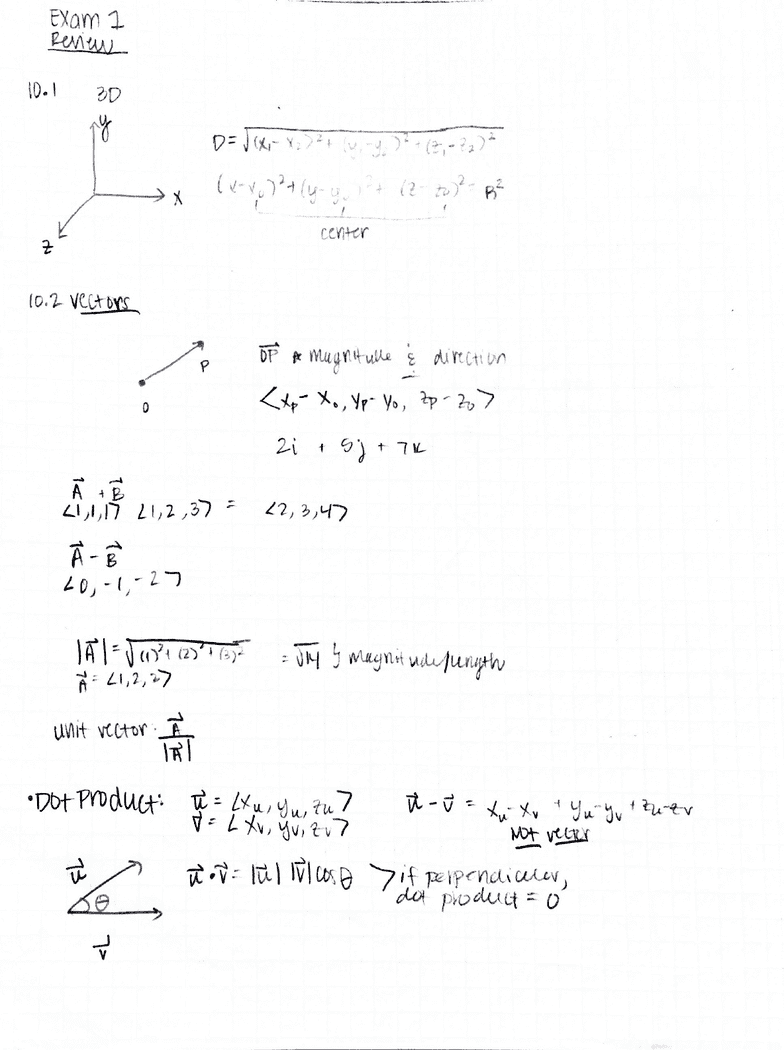 Exam 1
Review
10.1 3D
y
x
z
D = √(x₁-x₂)²+(y₁-y₂)²-(z₁-z₂)²
(x-x₀)²+(y-y₀)²+(z-z₀)²= R²
center
10.2 vectors
O
P
OP⃗ * magnitude & direction
<xp - x₀, yp - y₀, zp - z₀>
2i + 5j + 7k
A⃗ + B⃗
<1,1,1> <1,2,3> = <2,3,4>
A⃗ - B⃗
<0,-1,-2>
|A⃗| = √(1)²+(2)²+(3)² = √14 } magnitude/length
A⃗ = <1,2,2>
unit vector: A⃗/|A⃗|
•Dot Product: u⃗ = <xu, yu, zu> u⃗ - v⃗ = xu-xv + yu-yv + zu-zv
v⃗ = <xv, yv, zv> NOT vector
u⃗
θ
v⃗
u⃗•v⃗ = |u⃗| |v⃗| cosθ > if perpendicular,
dot product = 0